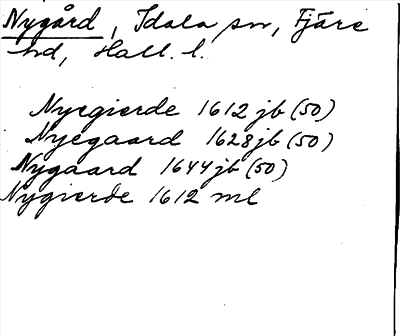 Nygård, Idala sn, Fjäre
hd, Hall. l.
Nyegierde 1612 jb (50)
Nyegaard 1628 jb (50)
Nygaard 1644 jb (50)
Nygierde 1612 ml